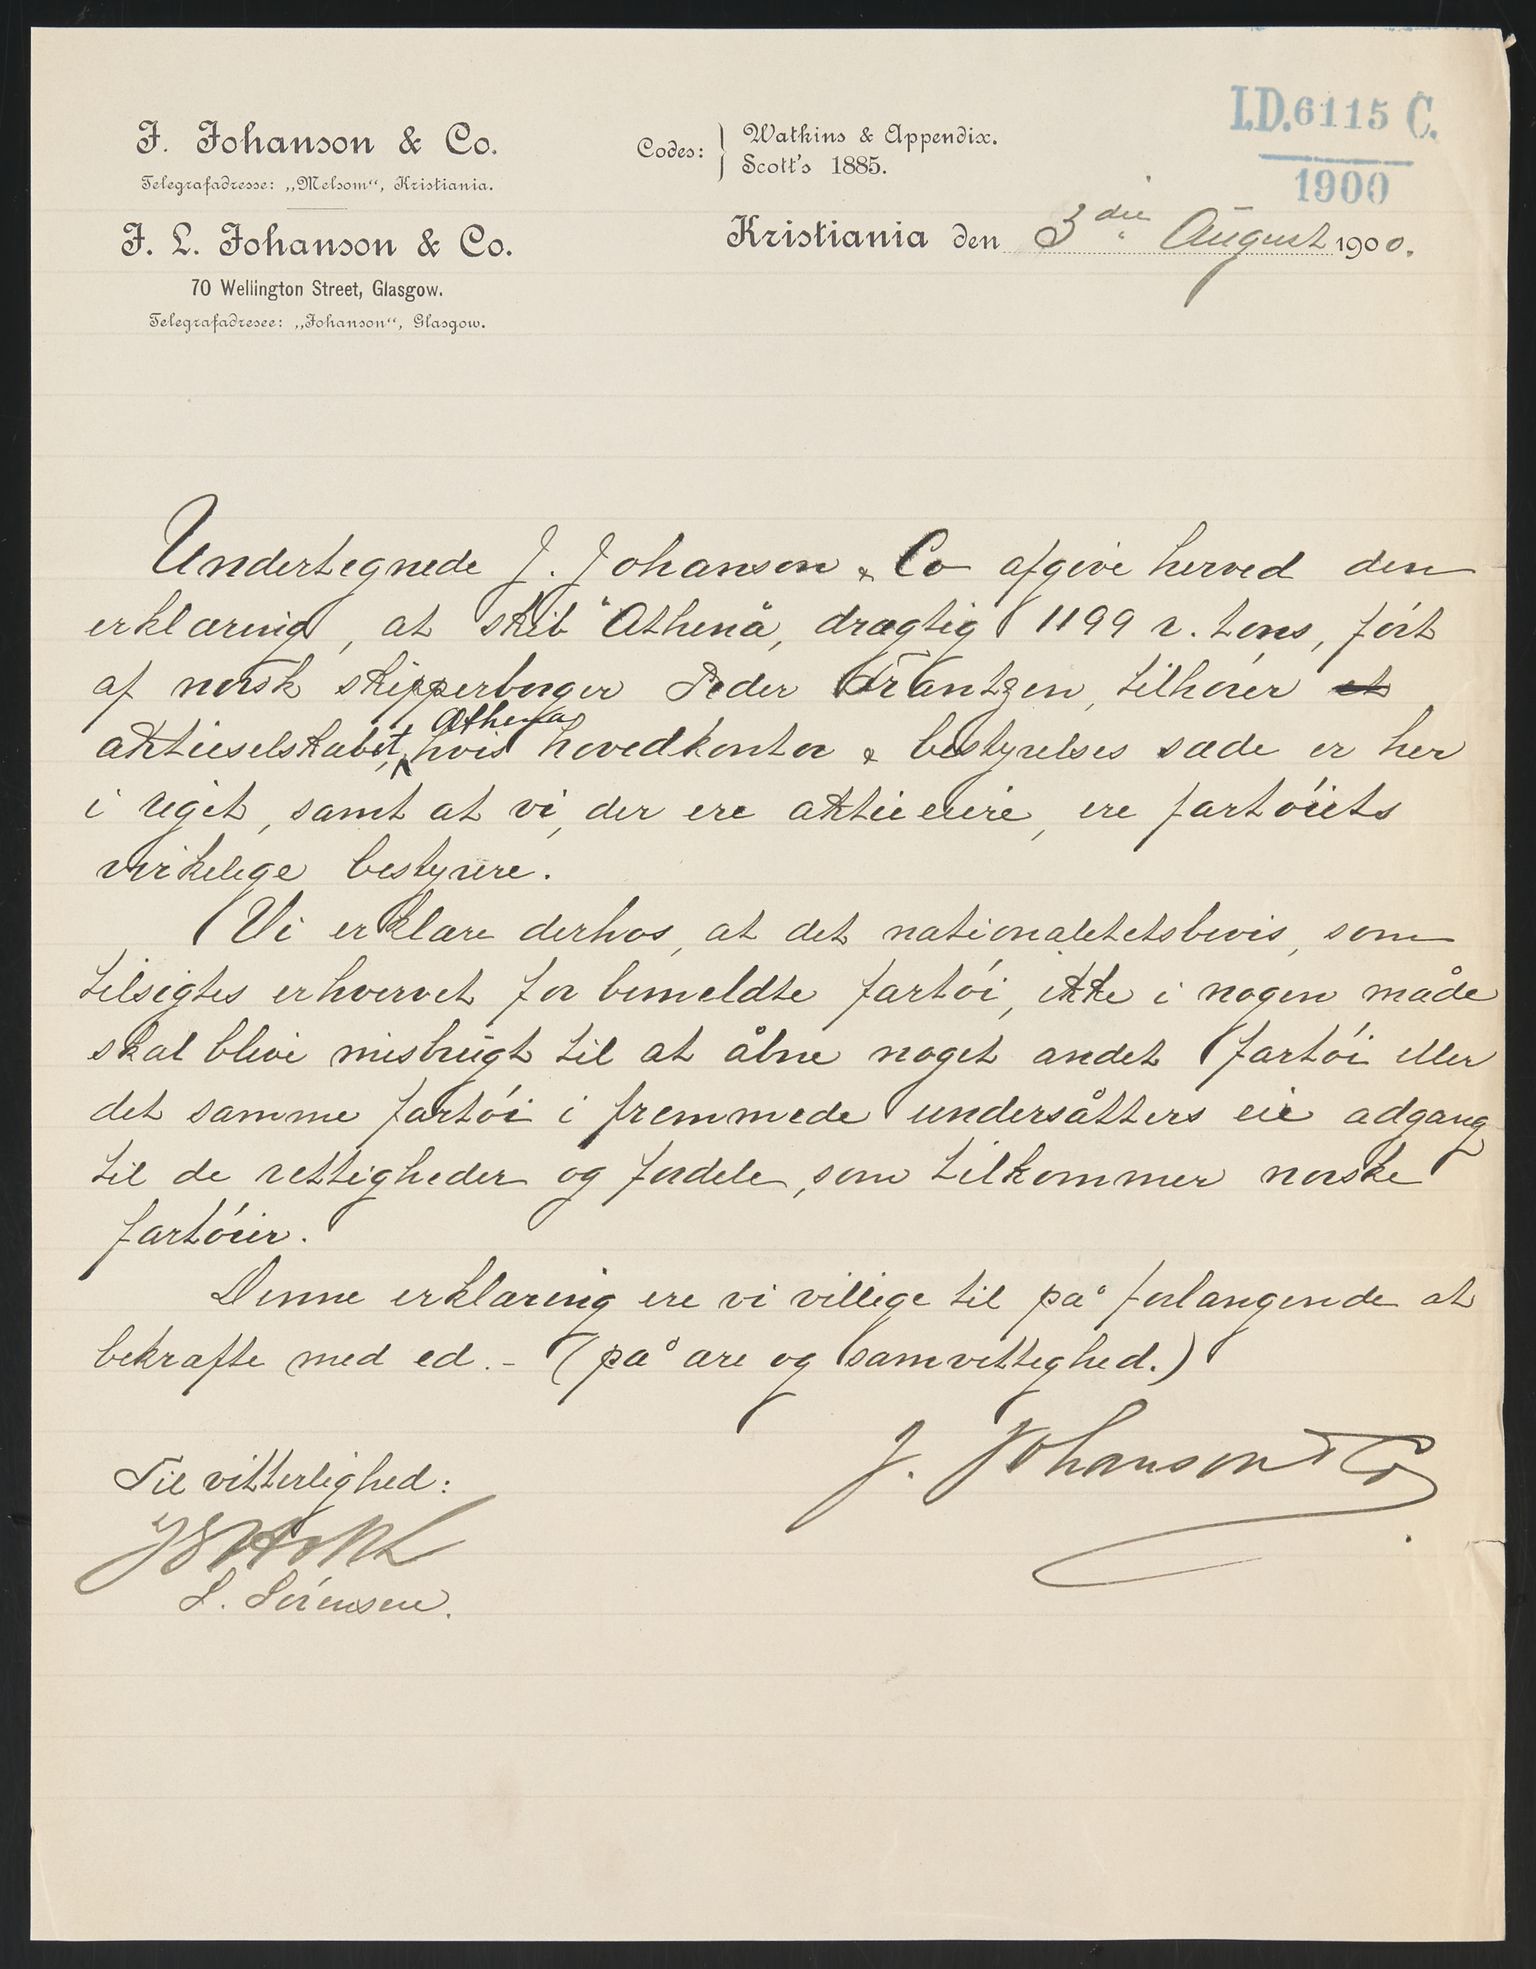 J. Johanson & Co.
Telegrafadresse: „Melsom“, Kristiania.
J. L. Johanson & Co.
70 Wellington Street, Glasgow.
Telegrafadresee: „Johanson“, Glasgow.
Codes: Watkins & Appendix.
Scott's 1885.
I.D. 6115 C.
1900
Kristiania den 3die August 1900.
Undertegnede J. Johanson & Co afgive herved den
erklæring, at skib "Athena", drægtig 1199 r. tons, ført
af norsk skipperborger Peder Frantzen, tilhører et
Athena
aktieselskabet, hvis hovedkontor & bestyrelses sæde er her
i riget, samt at vi, der ere aktieeiere, ere fartøiets
virkelige bestyrere.
Vi erklære derhos, at det nationalitetsbevis, som
tilsigtes erhvervet for bemeldte fartøi, ikke i nogen måde
skal blive misbrugt til at åbne noget andet fartøi eller
det samme fartøi i fremmede undersåtters eie adgang
til de rettigheder og fordele, som tilkommer norske
fartøier.
Denne erklæring ere vi villige til på forlangende at
bekræfte med ed. - (på ære og samvittighed.)
J. Johanson & Co
Til vitterlighed:
S. Sørensen.